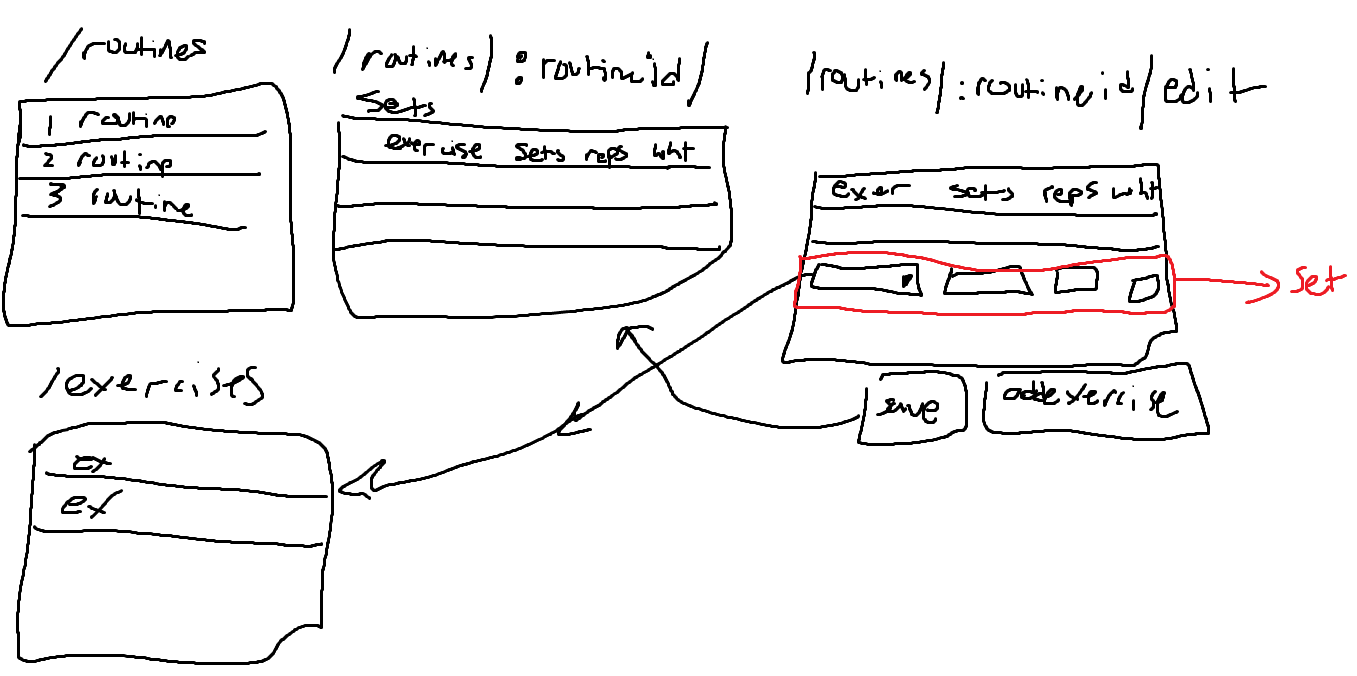 /routines
1 routine
2 routine
3 routine
/routines/:routineid/
Sets
exercise sets reps wht
/routines/:routineid/edit
exer sets reps wht
Set
save
add exercise
/exercises
ex
ex